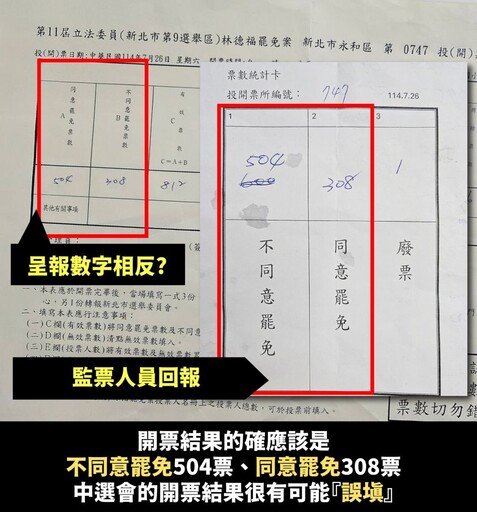 第11屆立法委員(新北市第9選舉區)林德福罷免案 新北市永和區 第 0747 投(開)
投(開)票日期:中華民國114年7月26日 星期六
同意罷免票數 A
不同意罷免票數 B
有效票數 C
C=A+B
504
308
812
其他有關事項
票數統計卡
投開票所編號: 747
114.7.26
1
2
3
504
308
1
不同意罷免
同意罷免
廢票
呈報數字相反?
一、本表應於開票完畢後,當場填寫一式3份
心,另1份轉報新北市選舉委員會。
二、填寫本表應行注意事項:
(一)C欄(有效票數)將同意罷免票數及不同意
(二)D欄(無效票數)清點無效票數填入。
(三)E欄(投票人數)將有效票數及無效票數
監票人員回報
投票人名冊上之投票人總數,可於投票前填入。
票數切勿錯
開票結果的確應該是
不同意罷免504票、同意罷免308票
中選會的開票結果很有可能『誤填』